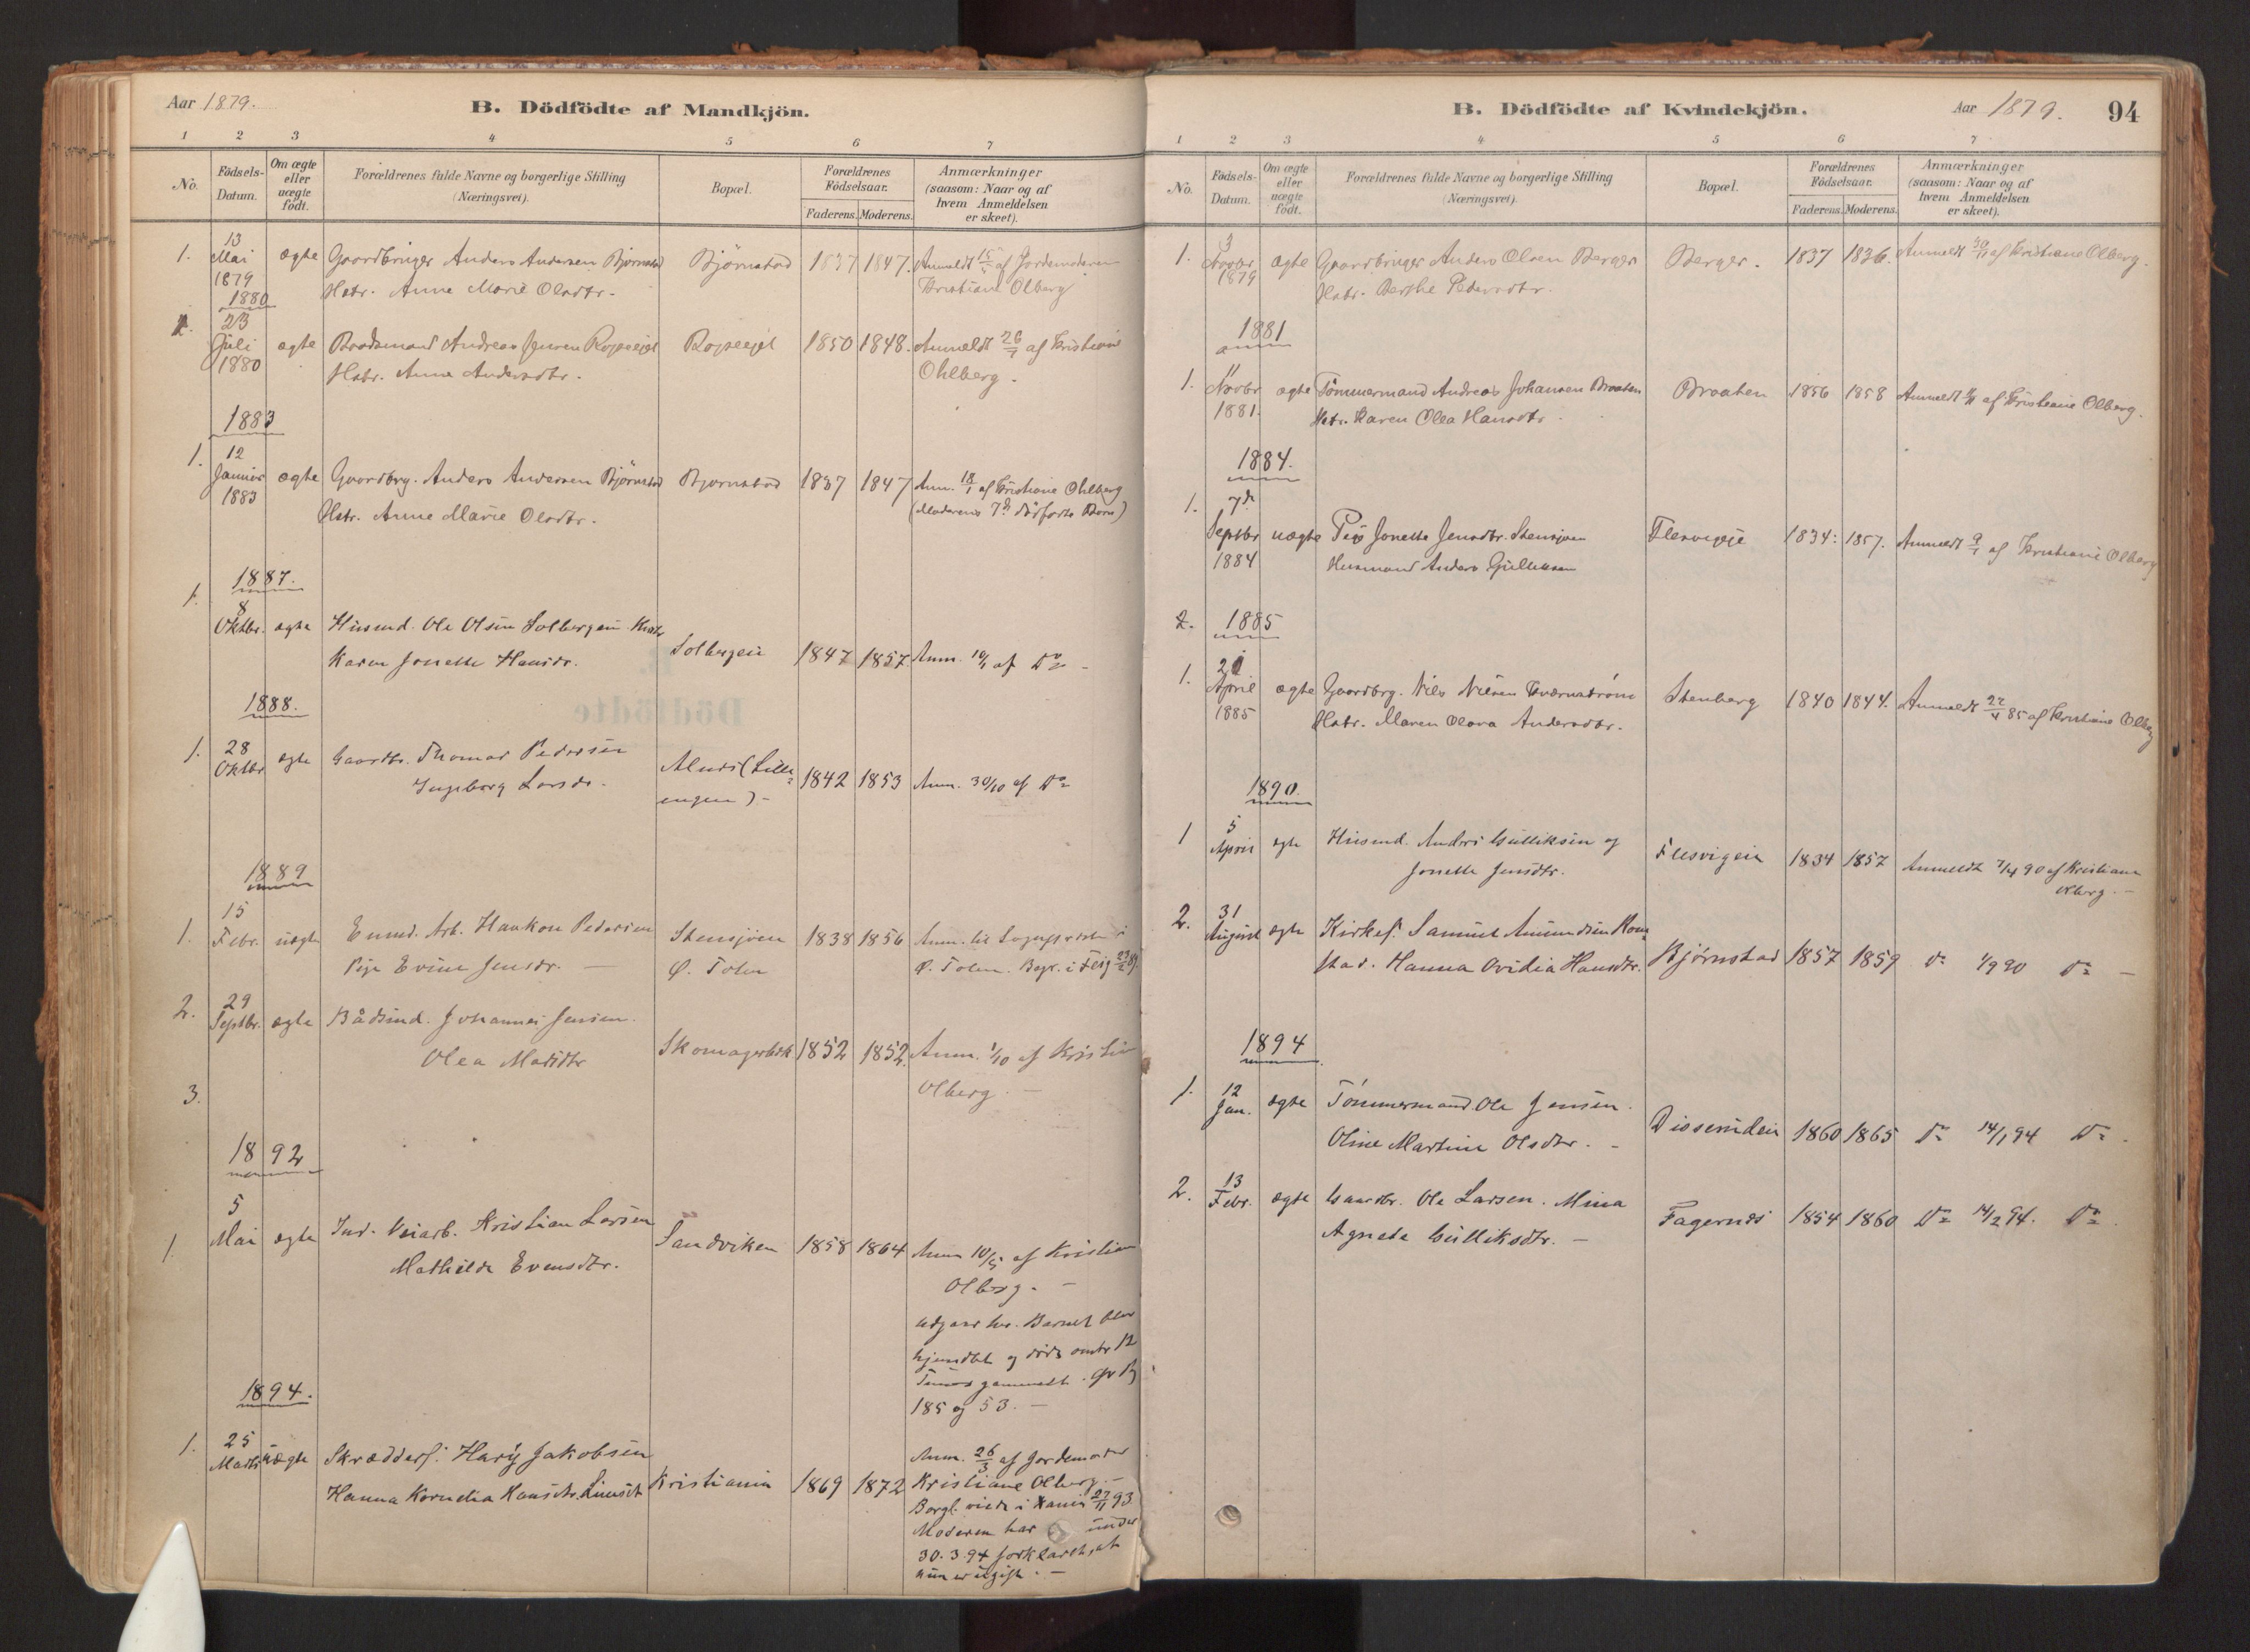 Aar 1879.
B. Dödfödte af Mandkjön.
1 2 3 4 5 6 7
No. Födsels-Datum. Om ægte eller uægte födt. Forældrenes fulde Navne og borgerlige Stilling (Næringsvei). Bopæl. Forældrenes Födselsaar. Faderens. Moderens. Anmærkninger (saasom: Naar og af hvem Anmeldelsen er skeet).
1. 13 Mai 1879 ægte Gaardbruger Anders Andersen Bjørnstad Bjørnstad 1837 1847. Anmeldt 15/5 af Jordemoderen
Hstr. Anne Marie Olsdtr. Kristiane Olberg
1880
1. 23 Juli 1880 ægte Baadsmand Andreas Jensen 1850 1848. Anmeldt 26/7 af Kristiane
Hstr. Anne Andersdtr. Ohlberg.
1883
1. 12 Januar 1883 ægte Gaardbrg. Anders Andersen Bjørnstad Bjørnstad 1837 1847 Anm. 18/1 af Kristiane Ohlberg
Hstr. Anne Marie Olsdtr. (Moderens 7de dödfödte Barn)
1887.
1. 8 Oktbr. ægte Husmd. Ole Olsen Solbergeie
Karen Jonette Hansdr. Solbergeie 1847 1857 Anm. af Do -
1888.
1. 28 Oktbr ægte Gaardbr. Thomas Pedersen
Ingeborg Larsdr. (Lille-engen).- 1842 1853 Anm. 30/10 af Do
1889
1. 15 Febr. uægte Enmd. Arb. Haakon Pedersen Stensjøen 1838 1856 Anm. til Sognepresten i
Pige Evine Jensdr. - Ø. Toten Ø. Toten.
2. 29 Septbr. ægte Bådsmd. Johannes Jensen.
Olea Madsdtr Skomagerbæk 1852 1852. Anm. 1/10 af Kristiane
3. Olberg -
1892
1. 5 Mai ægte Ind. Veiarb. Kristian Larsen Sandviken 1858 1864 Anm 10/5 af Kristiane
Mathilde Evensdtr. Olberg. -
udgaar her. Barnet blev
hjemdbt og døde omtr 12
Timer gammelt.
185 og 53. -
1894.
1. 25 Marts uægte Skrædders. Jakobsen Anm. 26/3 af Jordemoder
Hanna Kornelia Hansdtr. Kristiania 1869 1872 Kristiane Olberg. -
Borgl. viede i Kania 27/11 93.
Moderen har under
30.3.94 forklaret, at
hun er ugift. -
B. Dödfödte af Kvindekjön.
Aar 1879. 94
1 2 3 4 5 6 7
No. Födsels-Datum. Om ægte eller uægte födt. Forældrenes fulde Navne og borgerlige Stilling (Næringsvei). Bopæl. Forældrenes Födselsaar. Faderens. Moderens. Anmærkninger (saasom: Naar og af hvem Anmeldelsen er skeet).
1. 3 Novbr 1879 ægte Gaardbruger Anders Olsen Berger Berger. 1837 1836. Anmeldt af Kristiane Olberg.
Hstr. Berthe Pedersdtr.
1881
1. 11 Novbr 1881. ægte Tømmermand Andreas Johansen Braaten Braaten 1856 1858 Anmeldt af Kristiane Olberg.
Hstr. Karen Olea Hansdtr.
1884.
1. 7de Septbr 1884 uægte Pige Jonette Jensdtr. Stensjøen Flesvigeie 1834. 1857. Anmeldt af Kristiane Olberg
Husmand Anders Gulliksen
2. 1885
1. 21 April 1885 ægte Gaardbrg. Nils Nilsen Kværnstrøm Stenberg 1840 1844. Anmeldt 22/4 85 af Kristiane Olberg
Hstr. Maren Olava Andersdtr.
1890.
1 5 April ægte Husmd. Anders Gulliksen og Flesvigeie 1834 1857 Anmeldt 7/4 90 af Kristiane
Jonette Jensdtr. Olberg. -
2. 31 August ægte Kirkes. Samuel Amundsen
Hanna Ovidia Hansdtr. Bjørnstad 1857 1859 do 1/9 90 do -
1894.
1. 12 Jan. ægte Tömmermand Ole Jensen.
Oline Martine Olsdtr. - 1860 1865 do 14/1 94 do.
2. 13 Febr. ægte Gaardbr. Ole Larsen. Mina Fagernes 1854 1860 do 14/2 94. do.
Agnete Gulliksdtr. -